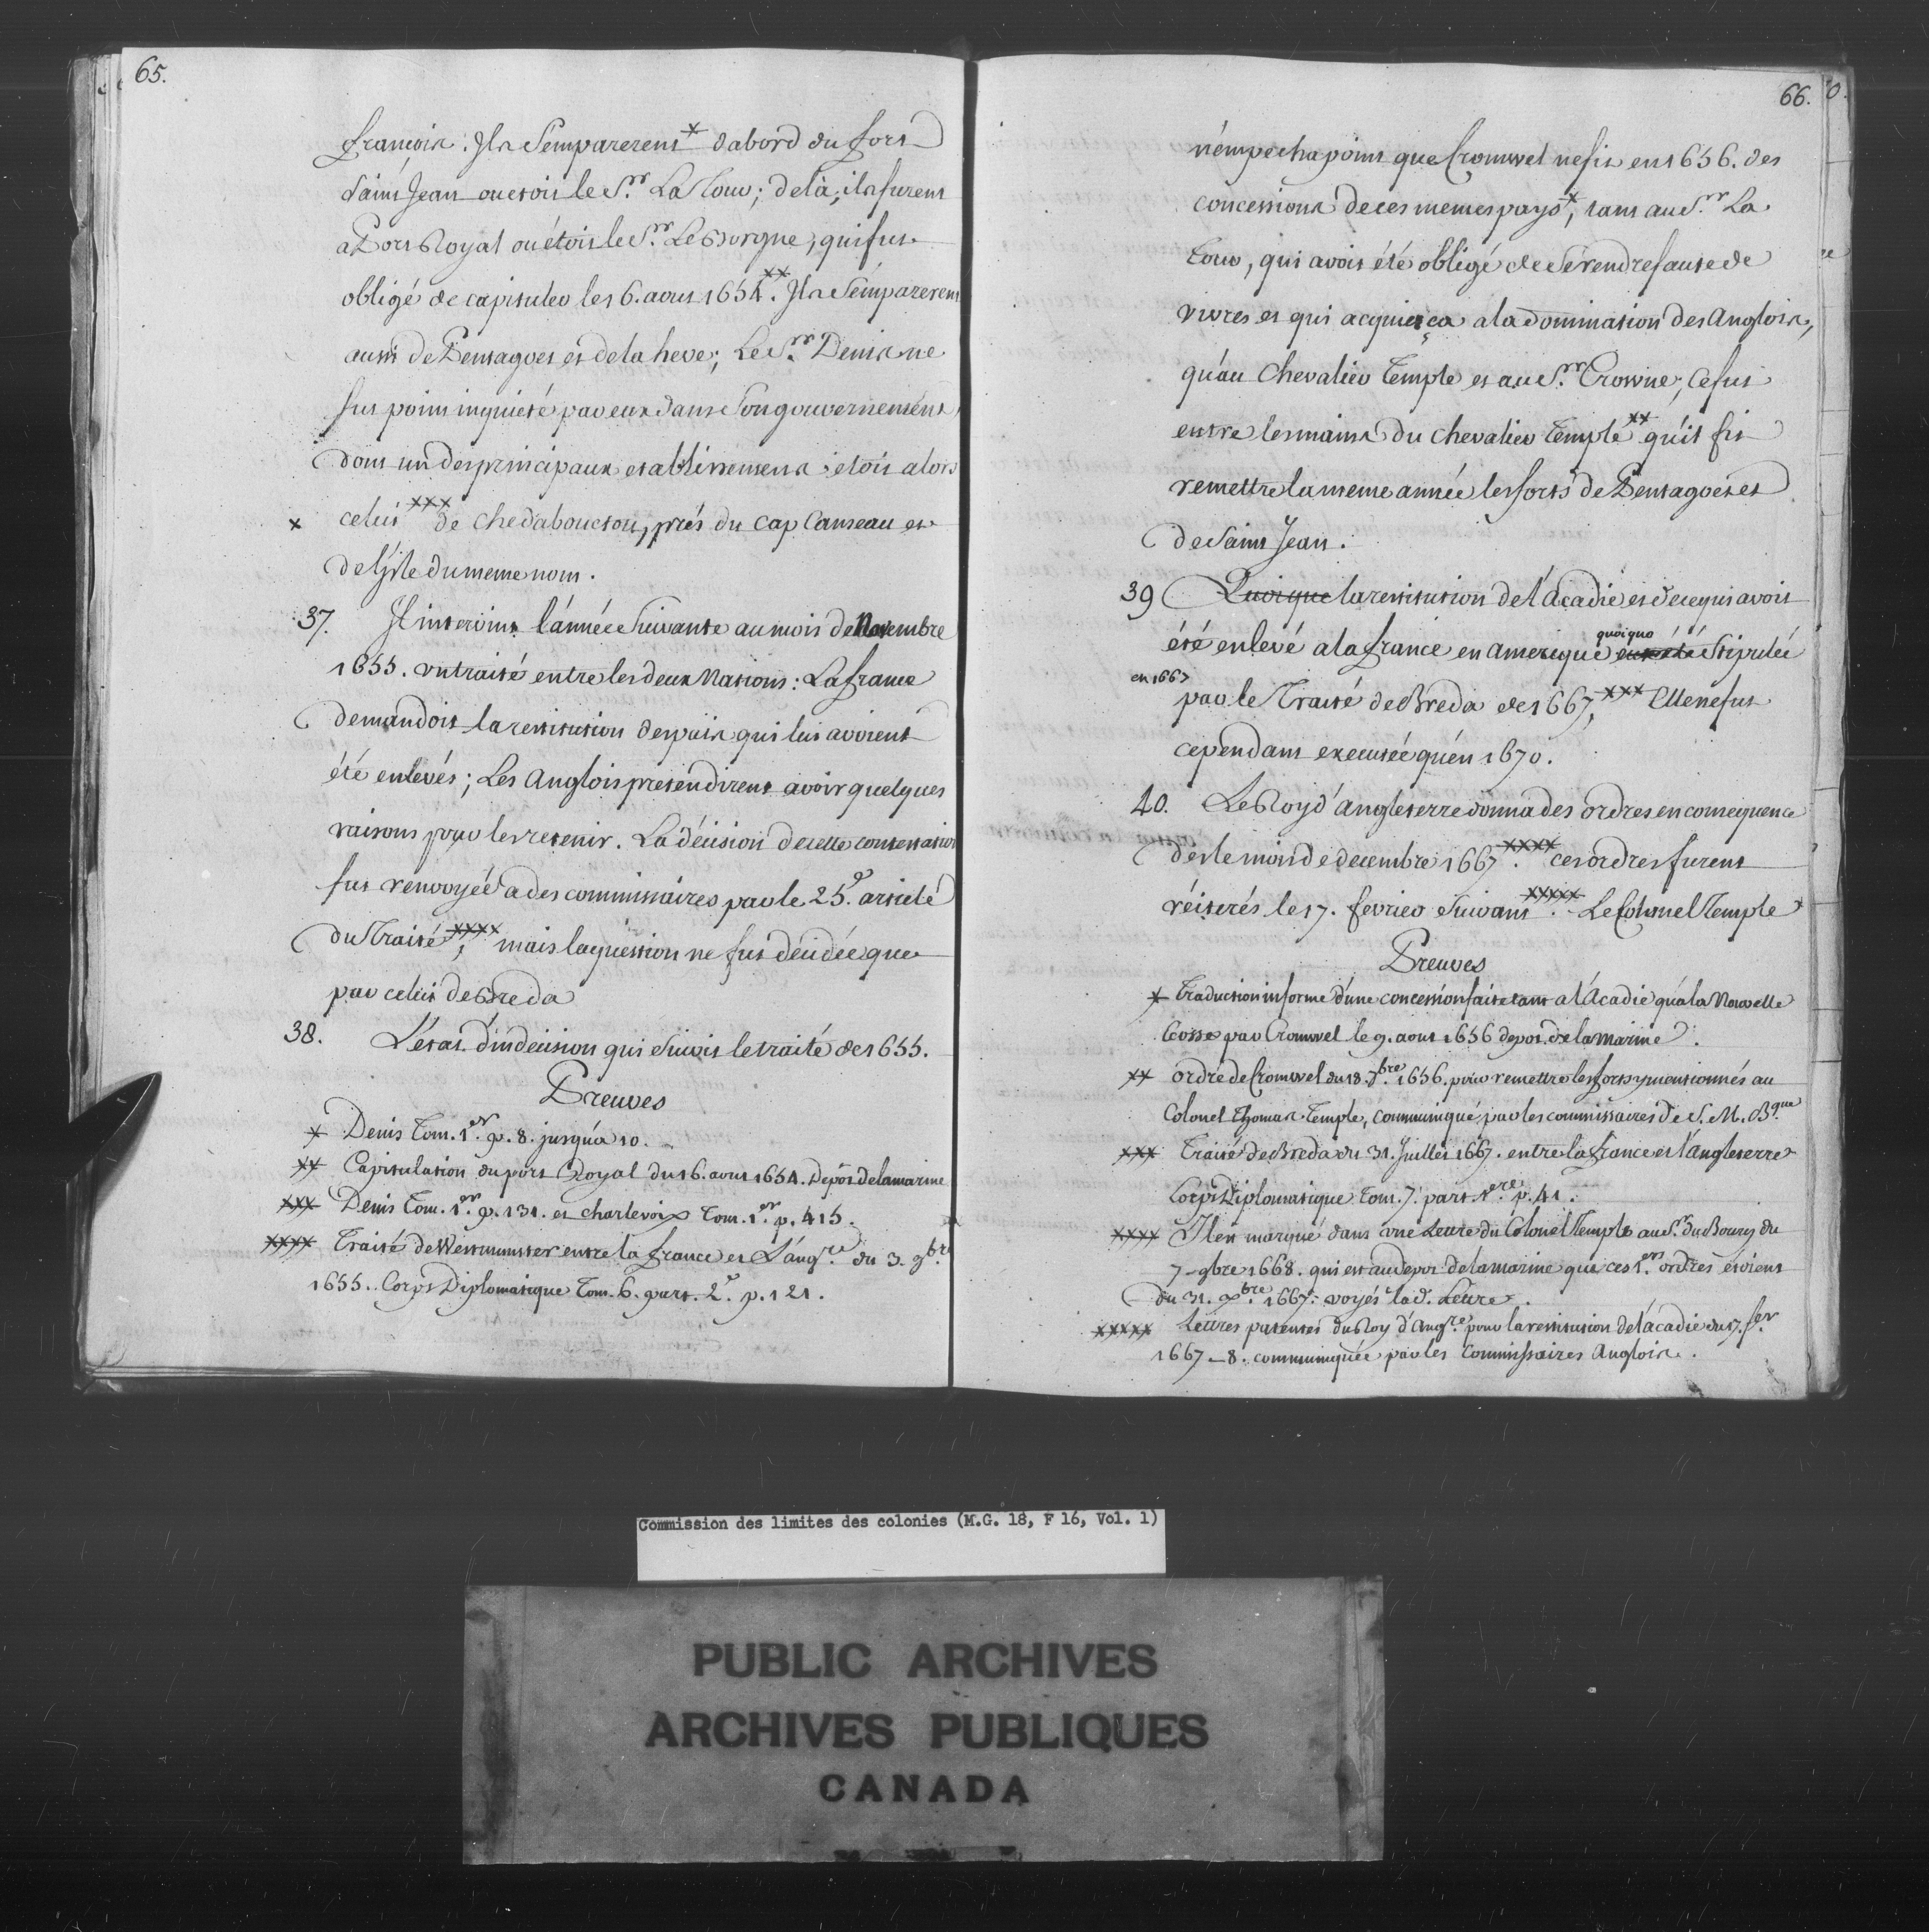 65.
francois. Ils s'emparerent * d'abord du fort
Saint Jean ou etoit le S.r La Tour; de là, ils furent
a Port Royal où étoit le S.r Le Borgne, qui fut
obligé de capituler le 16. aout 1654.** Ils s'emparerent
aussi de Pentagoet et de la heve; Le S.r Denis ne
fut point inquieté par eux dans son gouvernement
dont un des principaux etablissements etoit alors
x celui *** de Chedabouctou, prés du cap Canseau et
de l'jsle du meme nom.
37. Il intervint l'année suivante au mois de Novembre
1655. un traité entre les deux Nations: La france
demandoit la restitution des païs qui lui avoient
été enlevés; Les Anglois pretendirent avoir quelques
raisons pour les retenir. La décision de cette contestation
fut renvoyée a des commissaires par le 25.e article
du Traité ****; mais la question ne fut décidée que
par celui de Breda
38. L'état d'indécision qui suivit le traité de 1655.
Preuves
* Denis Tom. 1.er p. 8. jusqu'a 10.
** Capitulation du port Royal du 16. aout 1654. Dépôt de la marine
*** Denis Tom. 1.er p. 131. et charlevoix Tom. 1.er p. 415.
**** Traité de Westmunster entre la france et L'ang.re du 3. 9.bre
1655. Corps Diplomatique Tom. 6. part. 2.e p. 121.
66.
n'émpecha point que Cromwel ne fit en 1656. des
concessions de ces memes pays *, tant au S.r La
Tour, qui avoit été obligé de se rendre faute de
vivres et qui acquiesça a la domination des Anglois,
qu'au Chevalier Temple et au S.r Crowne; ce fut
entre les mains du chevalier Temple ** qu'il fit
remettre la meme année les forts de Pentagoet et
de Saint Jean.
39 Quoique la restitution de l'Acadie et de ce qui avoit
quoique
été enlevé a la france en amerique eut été stipulée
en 1667
par le Traité de Breda de 1667, *** Elle ne fut
cependant executée qu'en 1670.
40. Le Roy d'angleterre donna des ordres en consequence
des le mois de decembre 1667. **** ces ordres furent
réiterés le 17. fevrier suivant *****. Le Colonel Temple
Preuves
* Traduction informe d'une concession faite tant a l'Acadie qu'a la Nouvelle
Ecosse par Cromwel le 9. aout 1656 depot de la marine.
** ordre de Cromwel du 18. 7.bre 1656. pour remettre les forts y mentionnés au
Colonel Thomas Temple, communiqué par les commissaires de S. M. B.que
*** Traité de Breda du 31. Juillet 1667. entre la france et l'angleterre
Corps Diplomatique Tom. 7. part. 1.ere p. 41.
**** Il est marqué dans une Lettre du Colonel Temple au S.r du Bourg du
7 - 9bre 1668. qui est au depot de la marine que ces 1.ers ordres étoient
du 31. X.bre 1667. voyés la d. Lettre.
***** Lettres patentes du Roy d'Ang.re pour la restitution de l'acadie du 17. fer
1667_8. communiquée par les Commissaires Anglois.
Commission des limites des colonies (M.G. 18, F 16, Vol. 1)
PUBLIC ARCHIVES
ARCHIVES PUBLIQUES
CANADA